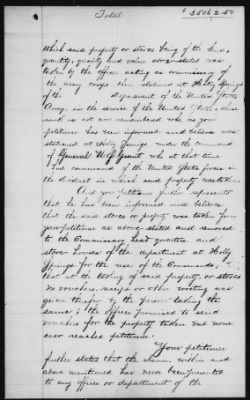 Total $3506 2.50
which said property or stores being of the kind,
quantity, quality and value above stated was
taken by the officer acting as commissary of
the army corps then stationed at Holly Springs
of the department of the United States
Army in the service of the United States, whose
name is not now remembered who as your
petitioner has been informed and believes was
stationed at Holly Springs under the command
of General U.S. Grant who at that time
had command of the United States forces in
the district in which said property was taken
And your petitioner further represents
that he has been informed and believes
that the said stores or property was taken from
your petitioner as above stated and removed
to the Commissary head quarters and
store houses of the department at Holly
Springs for the use of the Commands;
that at the taking of said property or stores
no vouchers receipt or other writing was
given therefor by the person taking the
same; the officer promised to send
vouchers for the property taken but none
ever reached petitioner.
Your petitioner
further states that the claim, within and
above mentioned has never been presented
to any officer or department of the